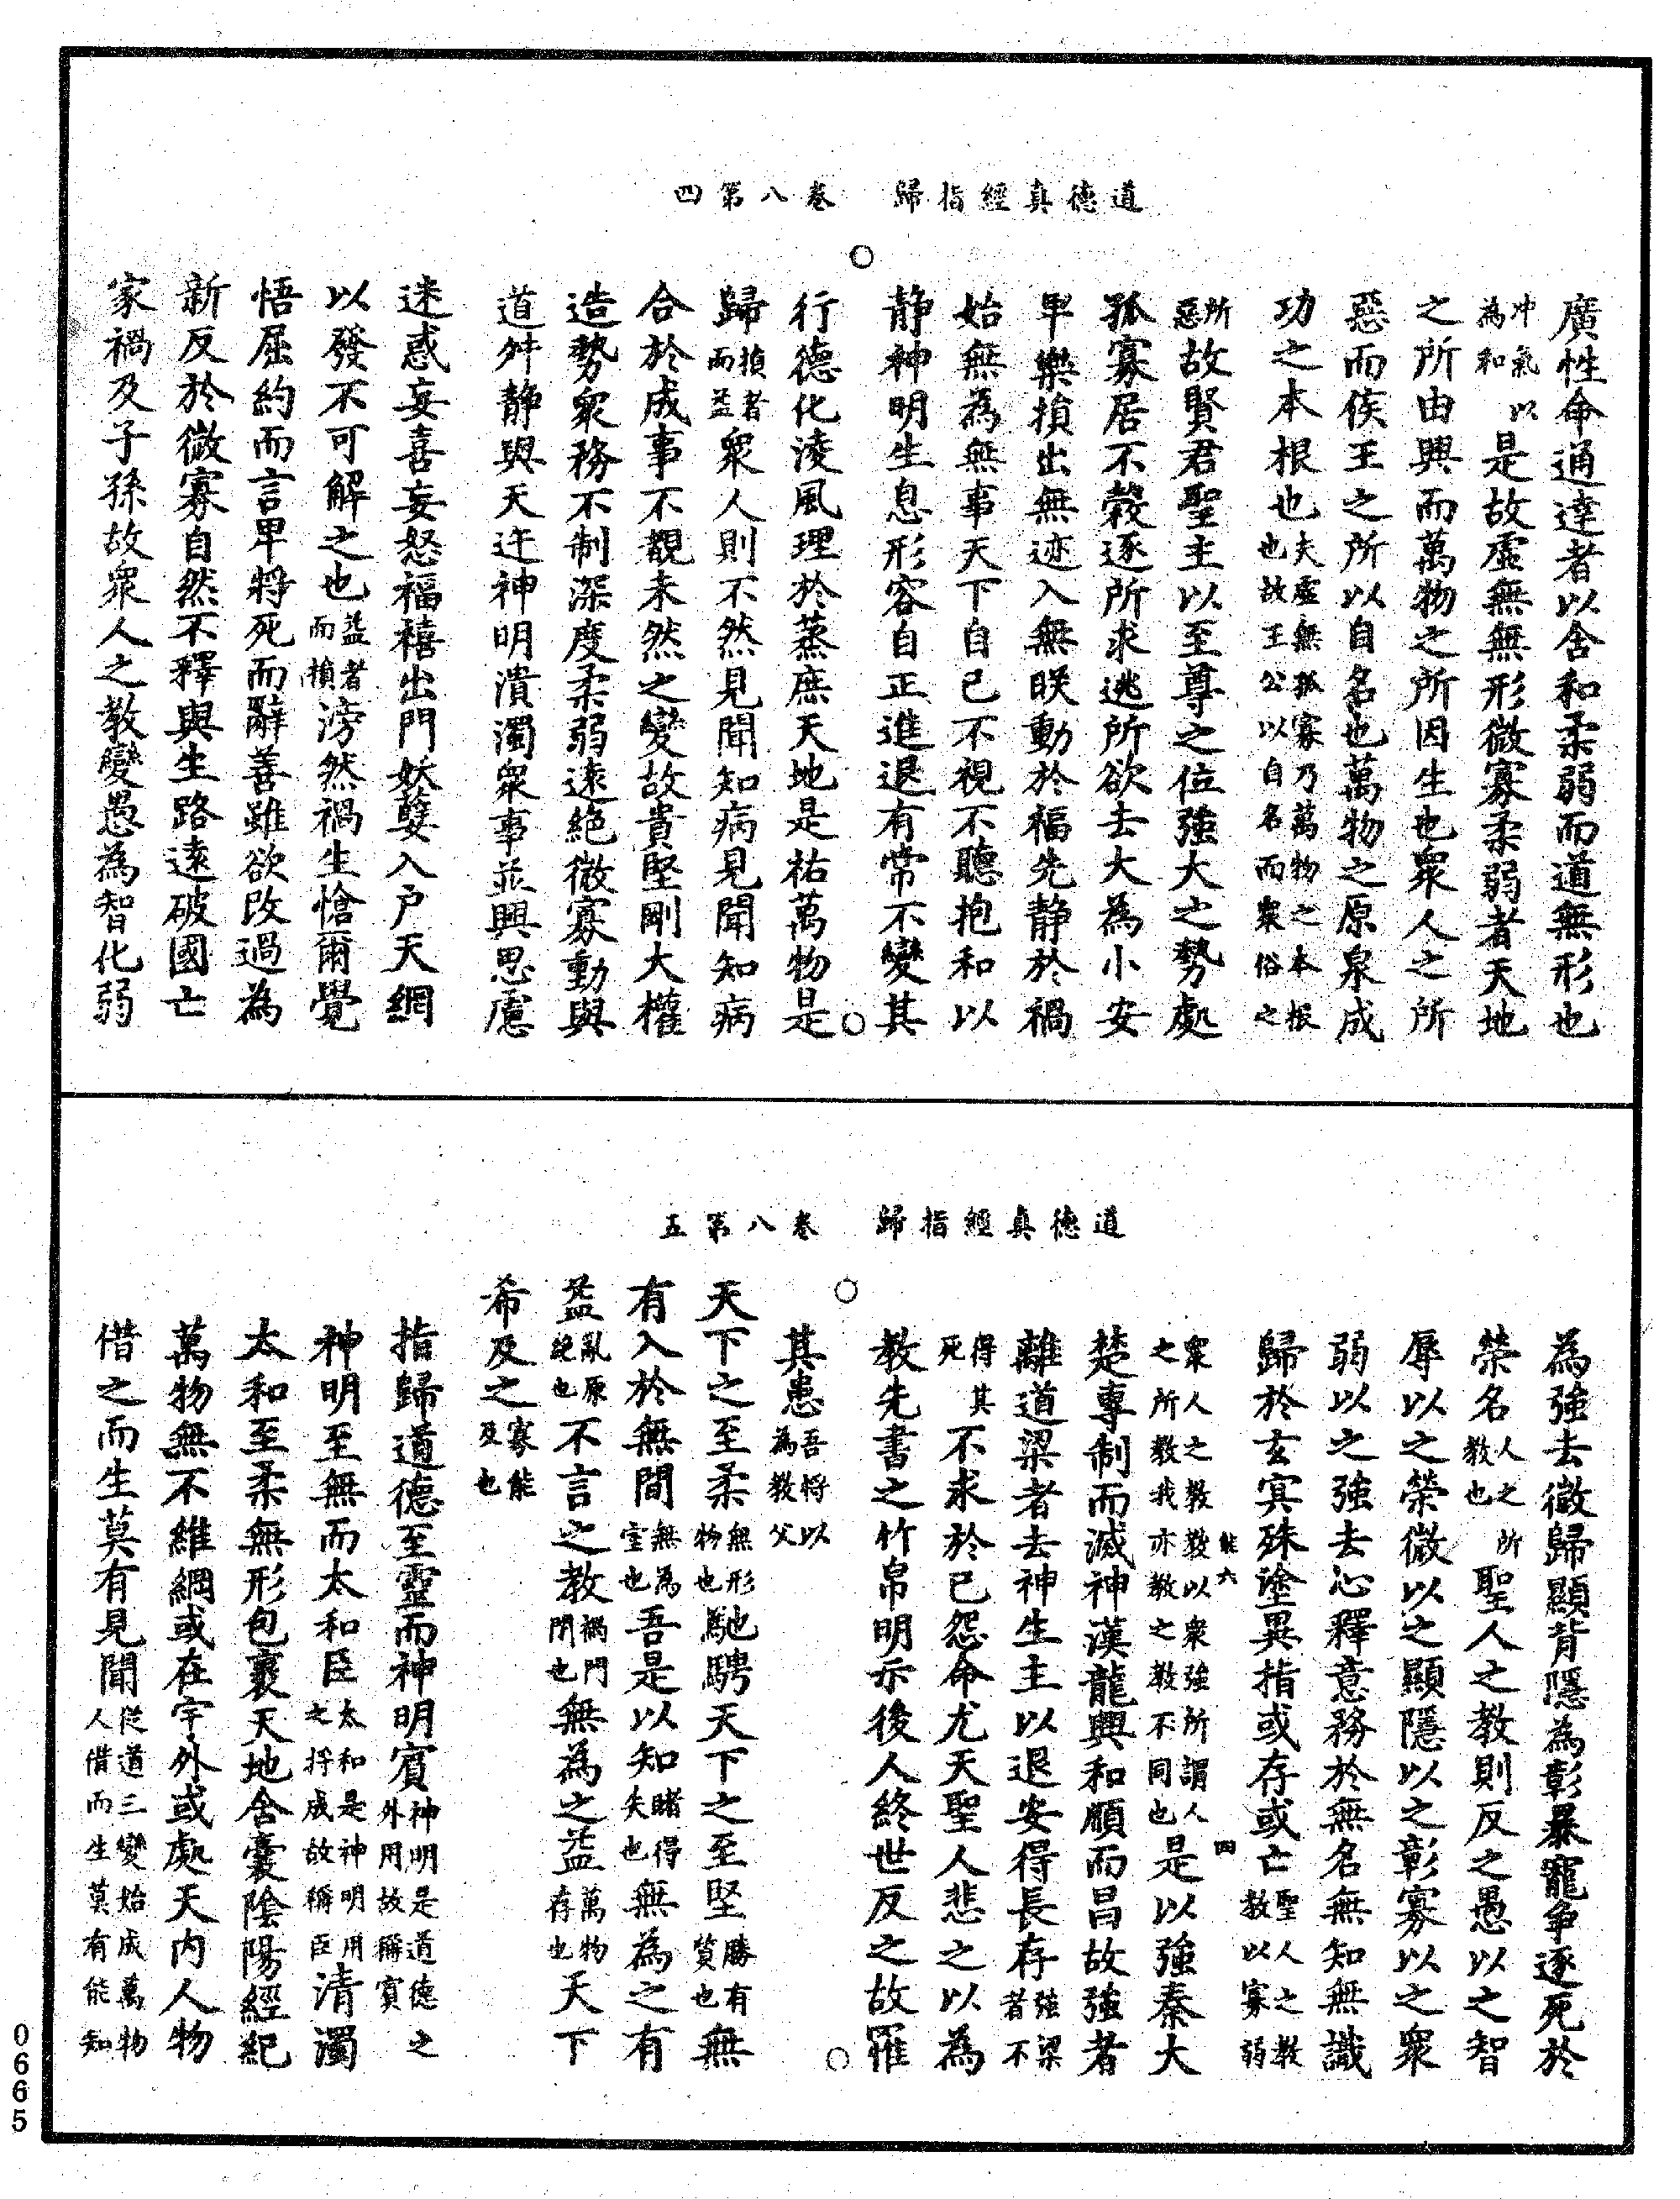 道德真經指歸　卷八第四
廣性命通達者以含和柔弱而道無形也
冲氣以為和是故虛無無形微寡柔弱者天地
之所由興而萬物之所因生也眾人之所
惡而侯王之所以自名也萬物之原泉成
功之本根也夫虛無孤寡乃萬物之本根也故王公以自名而衆俗之
所惡故賢君聖主以至尊之位強大之勢處
孤寡居不穀逐所求逃所欲去大為小安
卑樂損出無迹入無眹動於福先静於禍
始無為無事天下自已不視不聽抱和以
静神明生息形容自正進退有常不變其
行德化淩風理於蒸庶天地是祐萬物是
歸損者而益衆人則不然見聞知病見聞知病
合於成事不覩未然之變故貴堅剛大權
造勢衆務不制深度柔弱遠絕微寡動與
道舛静與天迕神明潰濁衆事並興思慮
迷惑妄喜妄怒福禧出門妖孽入户天網
以發不可解之也益者而損滂然禍生愴爾覺
悟屈約而言卑將死而辭善雖欲改過為
新反於微寡自然不釋與生路遠破國亡
家禍及子孫故衆人之教變愚為智化弱
道德真經指歸　卷八第五
為強去微歸顯背隱為彰暴寵争逐死於
榮名人之所教也聖人之教則反之愚以之智
辱以之榮微以之顯隱以之彰寡以之衆
弱以之強去心釋意務於無名無知無識
歸於玄冥殊塗異指或存或亡聖人之教教以寡弱
能六　四
衆人之教教以衆強所謂人之所教我亦教之教不同也是以強秦大
楚專制而滅神漢龍興和順而昌故強者
離道梁者去神生主以退安得長存強梁者不
得其死不求於己怨命尤天聖人悲之以為
教先書之竹帛明示後人終世反之故罹
其患吾將以為教父
天下之至柔無形物也馳騁天下之至堅勝有質也無
有入於無間無為室也吾是以知睹得失也無為之有
益亂原絕也不言之教禍門閉也無為之益萬物存也天下
希及之寡能及也
指歸道德至靈而神明賓神明是道德之外用故稱賓
神明至無而太和臣太和是神明用之捋成故稱臣清濁
太和至柔無形包裹天地含囊陰陽經紀
萬物無不維綱或在宇外或處天内人物
借之而生莫有見聞從道三變始成萬物人借而生莫有能知
0665